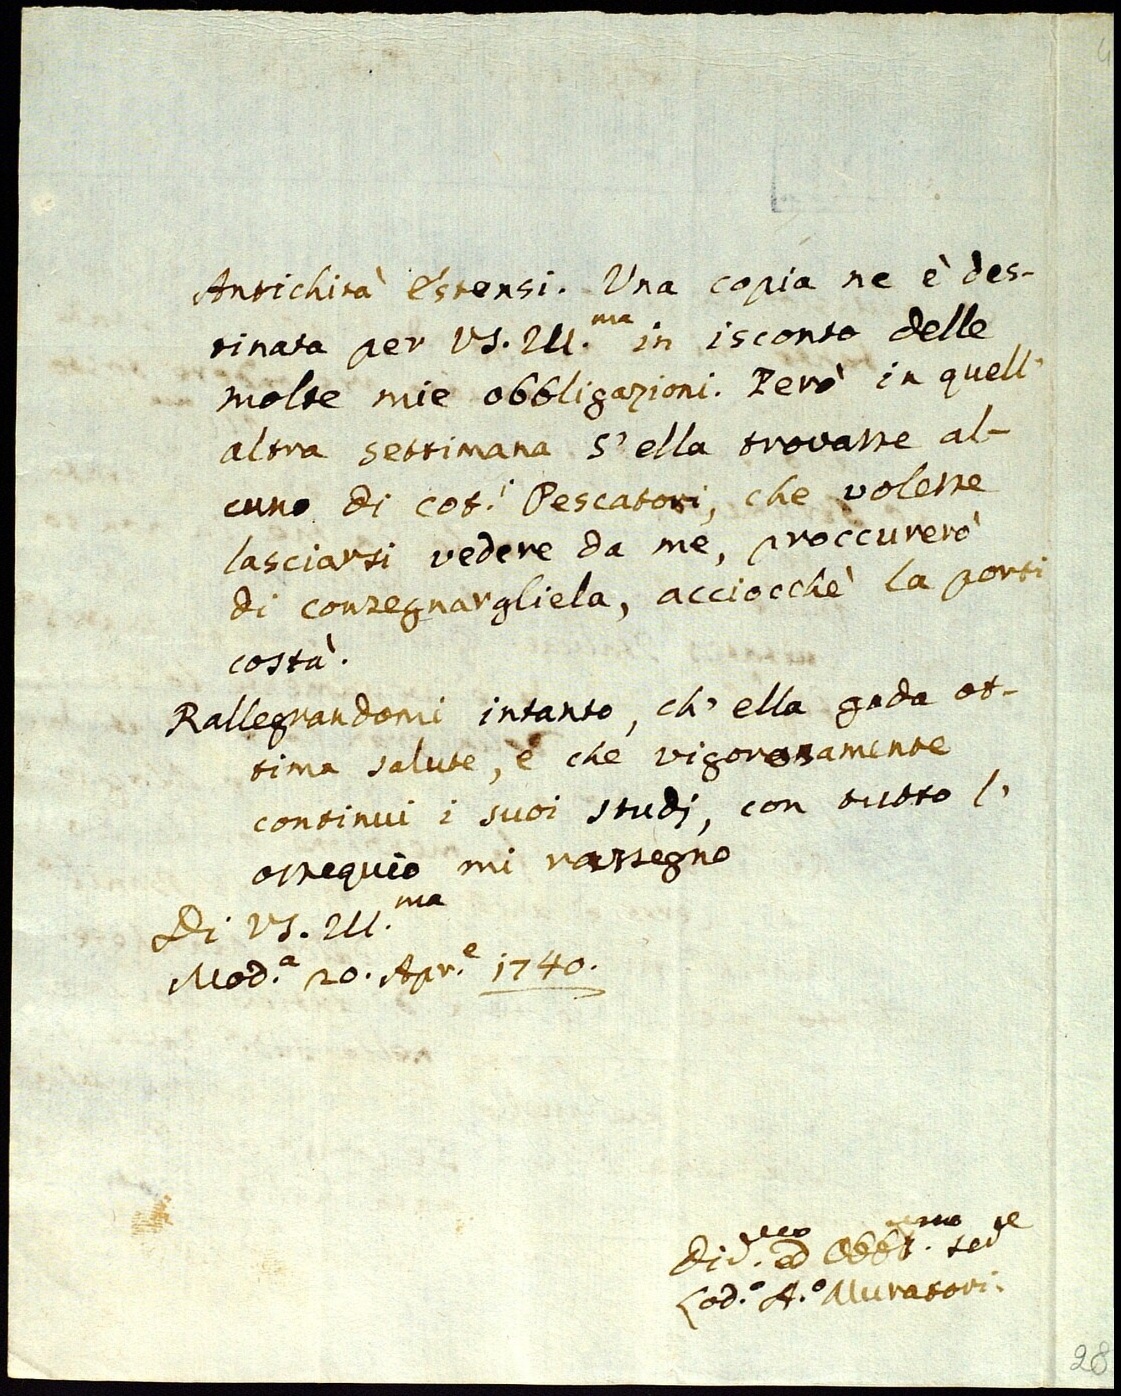 Antichità Estensi. Una copia ne è des-
tinata per VS. Ill.ma in isconto delle
molte mie obbligazioni. Però in quell'
altra settimana s'ella trovasse al-
cuno di cot.i Pescatori, che volesse
lasciarsi vedere da me, proccurerò
di consegnargliela, acciocchè la porti
costà.
Rallegrandomi intanto, ch'ella goda ot-
tima salute, e che vigorosamente
continui i suoi studj, con tutto l'
ossequio mi rassegno
Di VS. Ill.ma
Mod.a 20. Apr.e 1740.
Div.mo ed Obbl.mo se.re
Lod.o A.o Muratori.
28